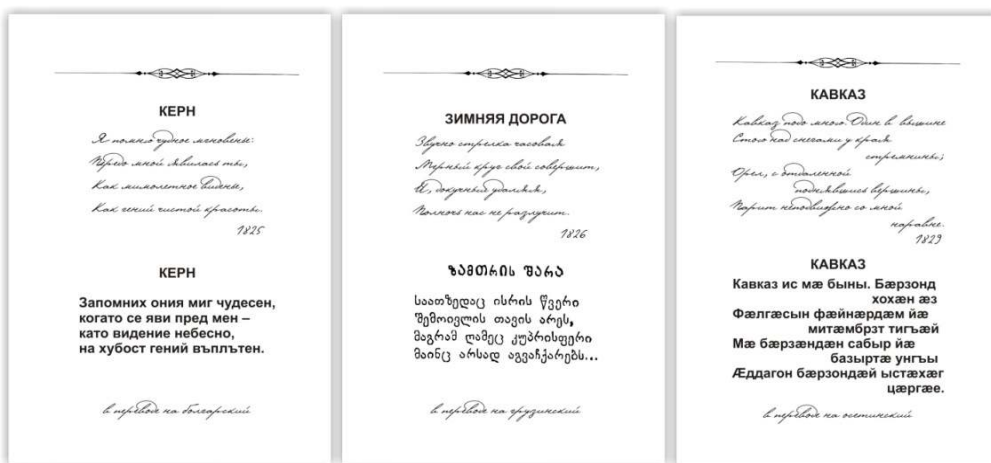 КЕРН
Я помню чудное мгновенье:
Передо мной явилась ты,
Как мимолетное виденье,
Как гений чистой красоты.
1825
КЕРН
Запомних ония миг чудесен,
когато се яви пред мен –
като видение небесно,
на хубост гений въплътен.
в переводе на болгарский
ЗИМНЯЯ ДОРОГА
Звучно стрелка часовая
Мерный круг свой совершит,
И, докучных удаляя,
Полночь нас не разлучит.
1826
ᲖᲐᲛᲗᲠᲘᲡ ᲨᲐᲠᲐ
საათზედაც ისრის წვერი
შემოივლის თავის არეს,
მაგრამ ღამეც კუპრისფერი
მაინც არსად აგვაჩქარებს...
в переводе на грузинский
КАВКАЗ
Кавказ подо мною. Один в вышине
Стою над снегами у края
стремнины;
Орел, с отдаленной
поднявшись вершины,
Парит неподвижно со мной
наравне.
1829
КАВКАЗ
Кавказ ис мæ быны. Бæрзонд
хохæн æз
Фæлгæсын фæйнæрдæм йæ
митæмбрзт тигъæй
Мæ бæрзæндæн сабыр йæ
базыртæ унгъы
Æддагон бæрзондæй ыстæхæг
цæргæе.
в переводе на осетинский